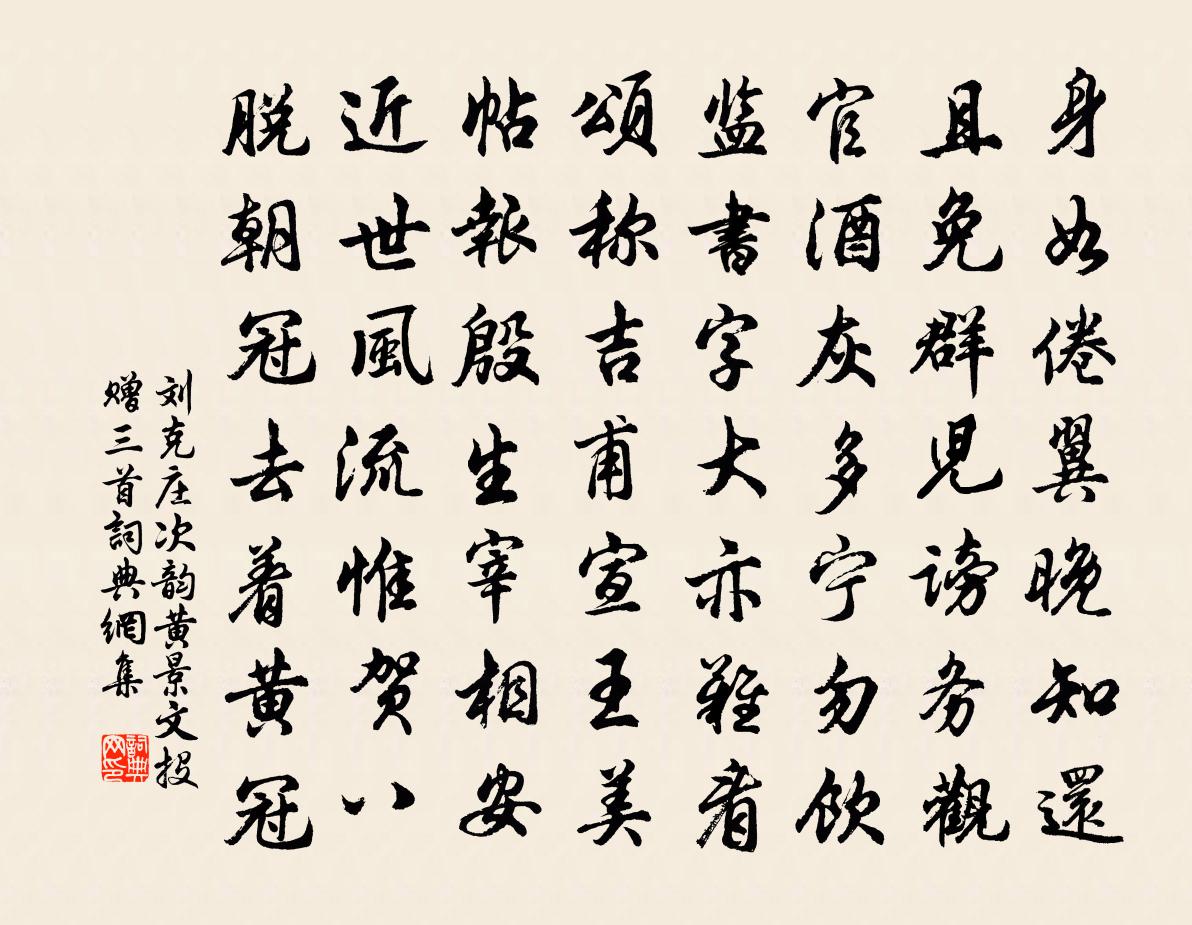 身如倦翼晚知還
且免群児謗务觀
官酒灰多宁勿飲
监書字大亦难看
頌称吉甫宣王美
帖報殷生宰相安
近世風流惟贺八
脱朝冠去着黄冠
刘克庄次韵黄景文投
赠三首詞典網集
詞典网印